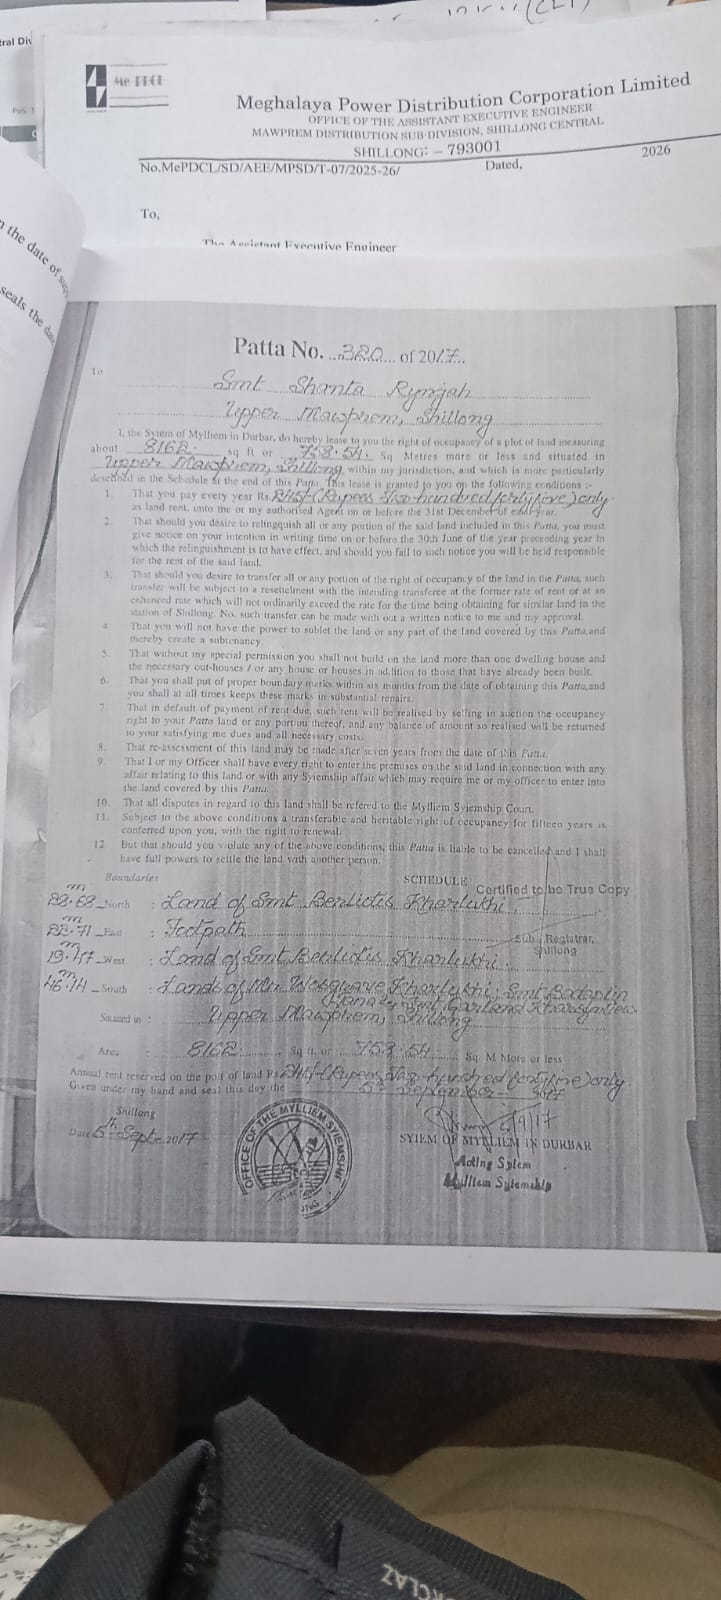 tral Div
n the date of
seals the
Me PDCL
Meghalaya Power Distribution Corporation Limited
OFFICE OF THE ASSISTANT EXECUTIVE ENGINEER
MAWPREM DISTRIBUTION SUB-DIVISION, SHILLONG CENTRAL
SHILLONG: – 793001
No.MePDCL/SD/AEE/MPSD/T-07/2025-26/ Dated, 2026
To,
The Assistant Executive Engineer
Patta No. 320 of 2017.
To
Smt Shanta Rynjah
Upper Mawprem, Shillong
I, the Syiem of Mylliem in Durbar, do hereby lease to you the right of occupancy of a plot of land measuring
about 8162 sq ft or 758.54 Sq Metres more or less and situated in
Upper Mawprem, Shillong within my jurisdiction, and which is more particularly
described in the Schedule at the end of this Patta. This lease is granted to you on the following conditions :-
1. That you pay every year Rs. 245/- (Rupees Two hundred forty five) only
as land rent, unto me or my authorised Agent on or before the 31st December of each year.
2. That should you desire to relingquish all or any portion of the said land included in this Patta, you must
give notice on your intention in writing time on or before the 30th June of the year preceeding year in
which the relinguishment is to have effect, and should you fail to such notice you will be held responsible
for the rent of the said land.
3. That should you desire to transfer all or any portion of the right of occupancy of the land in the Patta, such
transfer will be subject to a resettelment with the intending transferee at the former rate of rent or at an
enhanced rate which will not ordinarily exceed the rate for the time being obtaining for similar land in the
station of Shillong. No, such transfer can be made with out a written notice to me and my approval.
4. That you will not have the power to sublet the land or any part of the land covered by this Patta, and
thereby create a subtenancy.
5. That without my special permission you shall not build on the land more than one dwelling house and
the necessary out-houses / or any house or houses in addition to those that have already been built.
6. That you shall put of proper boundary marks within six months from the date of obtaining this Patta, and
you shall at all times keeps these marks in substantial repairs.
7. That in default of payment of rent due, such rent will be realised by selling in auction the occupancy
right to your Patta land or any portion thereof, and any balance of amount so realised will be returned
to your satisfying me dues and all necessary costs.
8. That re-assessment of this land may be made after seven years from the date of this Patta.
9. That I or my Officer shall have every right to enter the premises on the said land in connection with any
affair relating to this land or with any Syiemship affair which may require me or my officer to enter into
the land covered by this Patta.
10. That all disputes in regard to this land shall be refered to the Mylliem Syiemship Court.
11. Subject to the above conditions a transferable and heritable right of occupancy for fifteen years is
conferred upon you, with the right to renewal.
12. But that should you violate any of the above conditions, this Patta is liable to be cancelled and I shall
have full powers to settle the land with another person.
Boundaries SCHEDULE Certified to be True Copy
m North : Land of Smt Bendictis Kharlukhi.
22.71 m East : Footpath
Sub Registrar,
Shillong
19.47 m West : Land of Smt Bendictis Kharlukhi.
46.14 m South : Lands of Kharlukhi, Smt
Situated in : Upper Mawprem, Shillong
Area : 8162 Sq ft. or 758.54 Sq. M More or less
Annual rent reserved on the poit of land Rs. 245/- (Rupees Two hundred forty five) only
Given under my hand and seal this day the 5th September 2017
Shillong
Date 5th Sept. 2017
OFFICE OF THE MYLLIEM SYIEMSHIP
5/9/17
SYIEM OF MYLLIEM IN DURBAR
Acting Syiem
Mylliem Syiemship